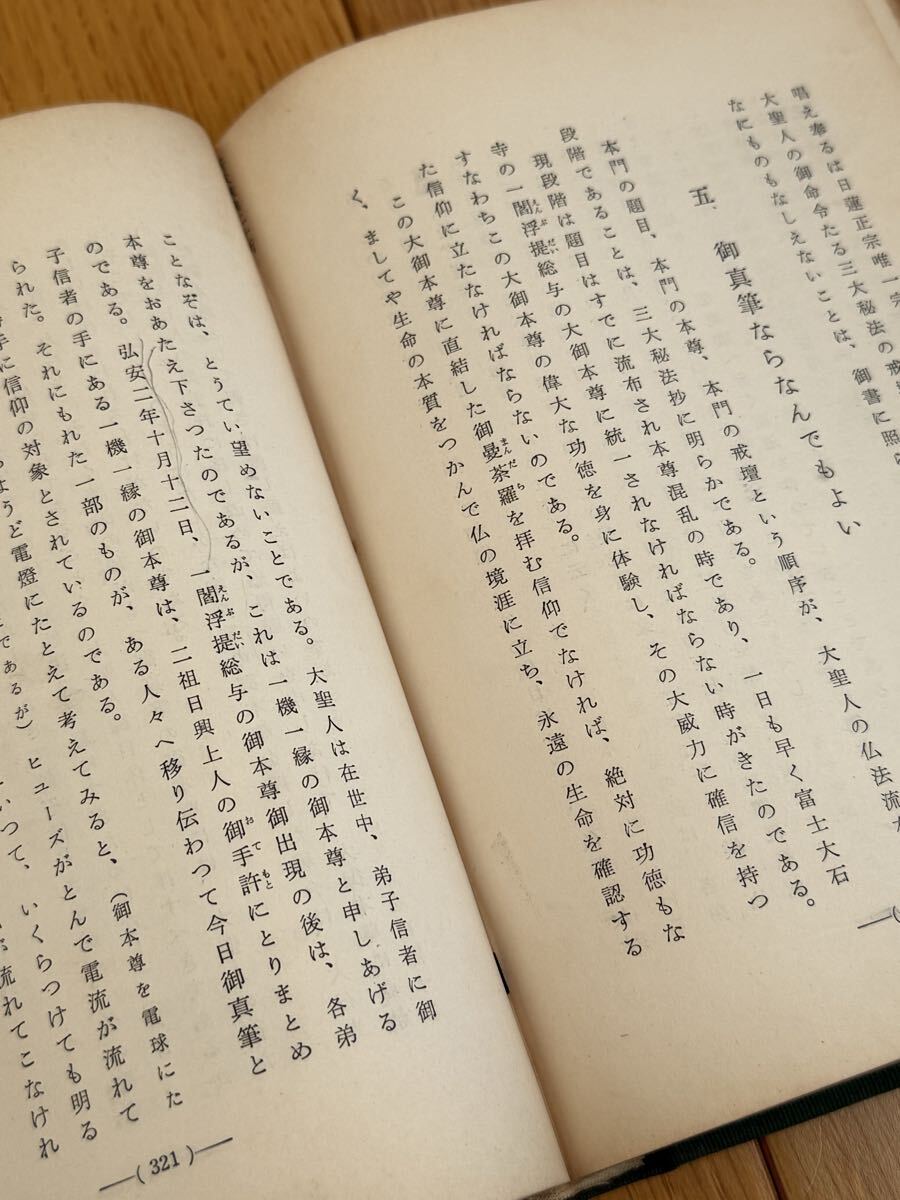 唱え奉るは日蓮正宗唯一宗
大聖人の御命令たる三大秘法の戒
なにものもなしえないことは、御書に照
五、御真筆ならなんでもよい
本門の題目、本門の本尊、本門の戒壇という順序が、大聖人の仏法流
段階であることは、三大秘法抄に明らかである。
現段階は題目はすでに流布され本尊混乱の時であり、一日も早く富士大石
寺の一閻浮提総与の大御本尊に統一されなければならない時がきたのである。
すなわちこの大御本尊の偉大な功徳を身に体験し、その大威力に確信を持つ
た信仰に立たなければならないのである。
この大御本尊に直結した御曼荼羅を拝む信仰でなければ、絶対に功徳もな
く、ましてや生命の本質をつかんで仏の境涯に立ち、永遠の生命を確認する
ことなぞは、とうてい望めないことである。大聖人は在世中、弟子信者に御
本尊をおあたえ下さつたのであるが、これは一機一縁の御本尊と申しあげる
のである。弘安二年十月十二日、一閻浮提総与の御本尊御出現の後は、各弟
子信者の手にある一機一縁の御本尊は、二祖日興上人の御手許にとりまとめ
られた。それにもれた一部のものが、ある人々へ移り伝わつて今日御真筆と
手に信仰の対象とされているのである。
うど電燈にたとえて考えてみると、(御本尊を電球にた
であるが)ヒューズがとんで電流が流れて
いつて、いくらつけても明る
流れてこなけれ
―(321)―